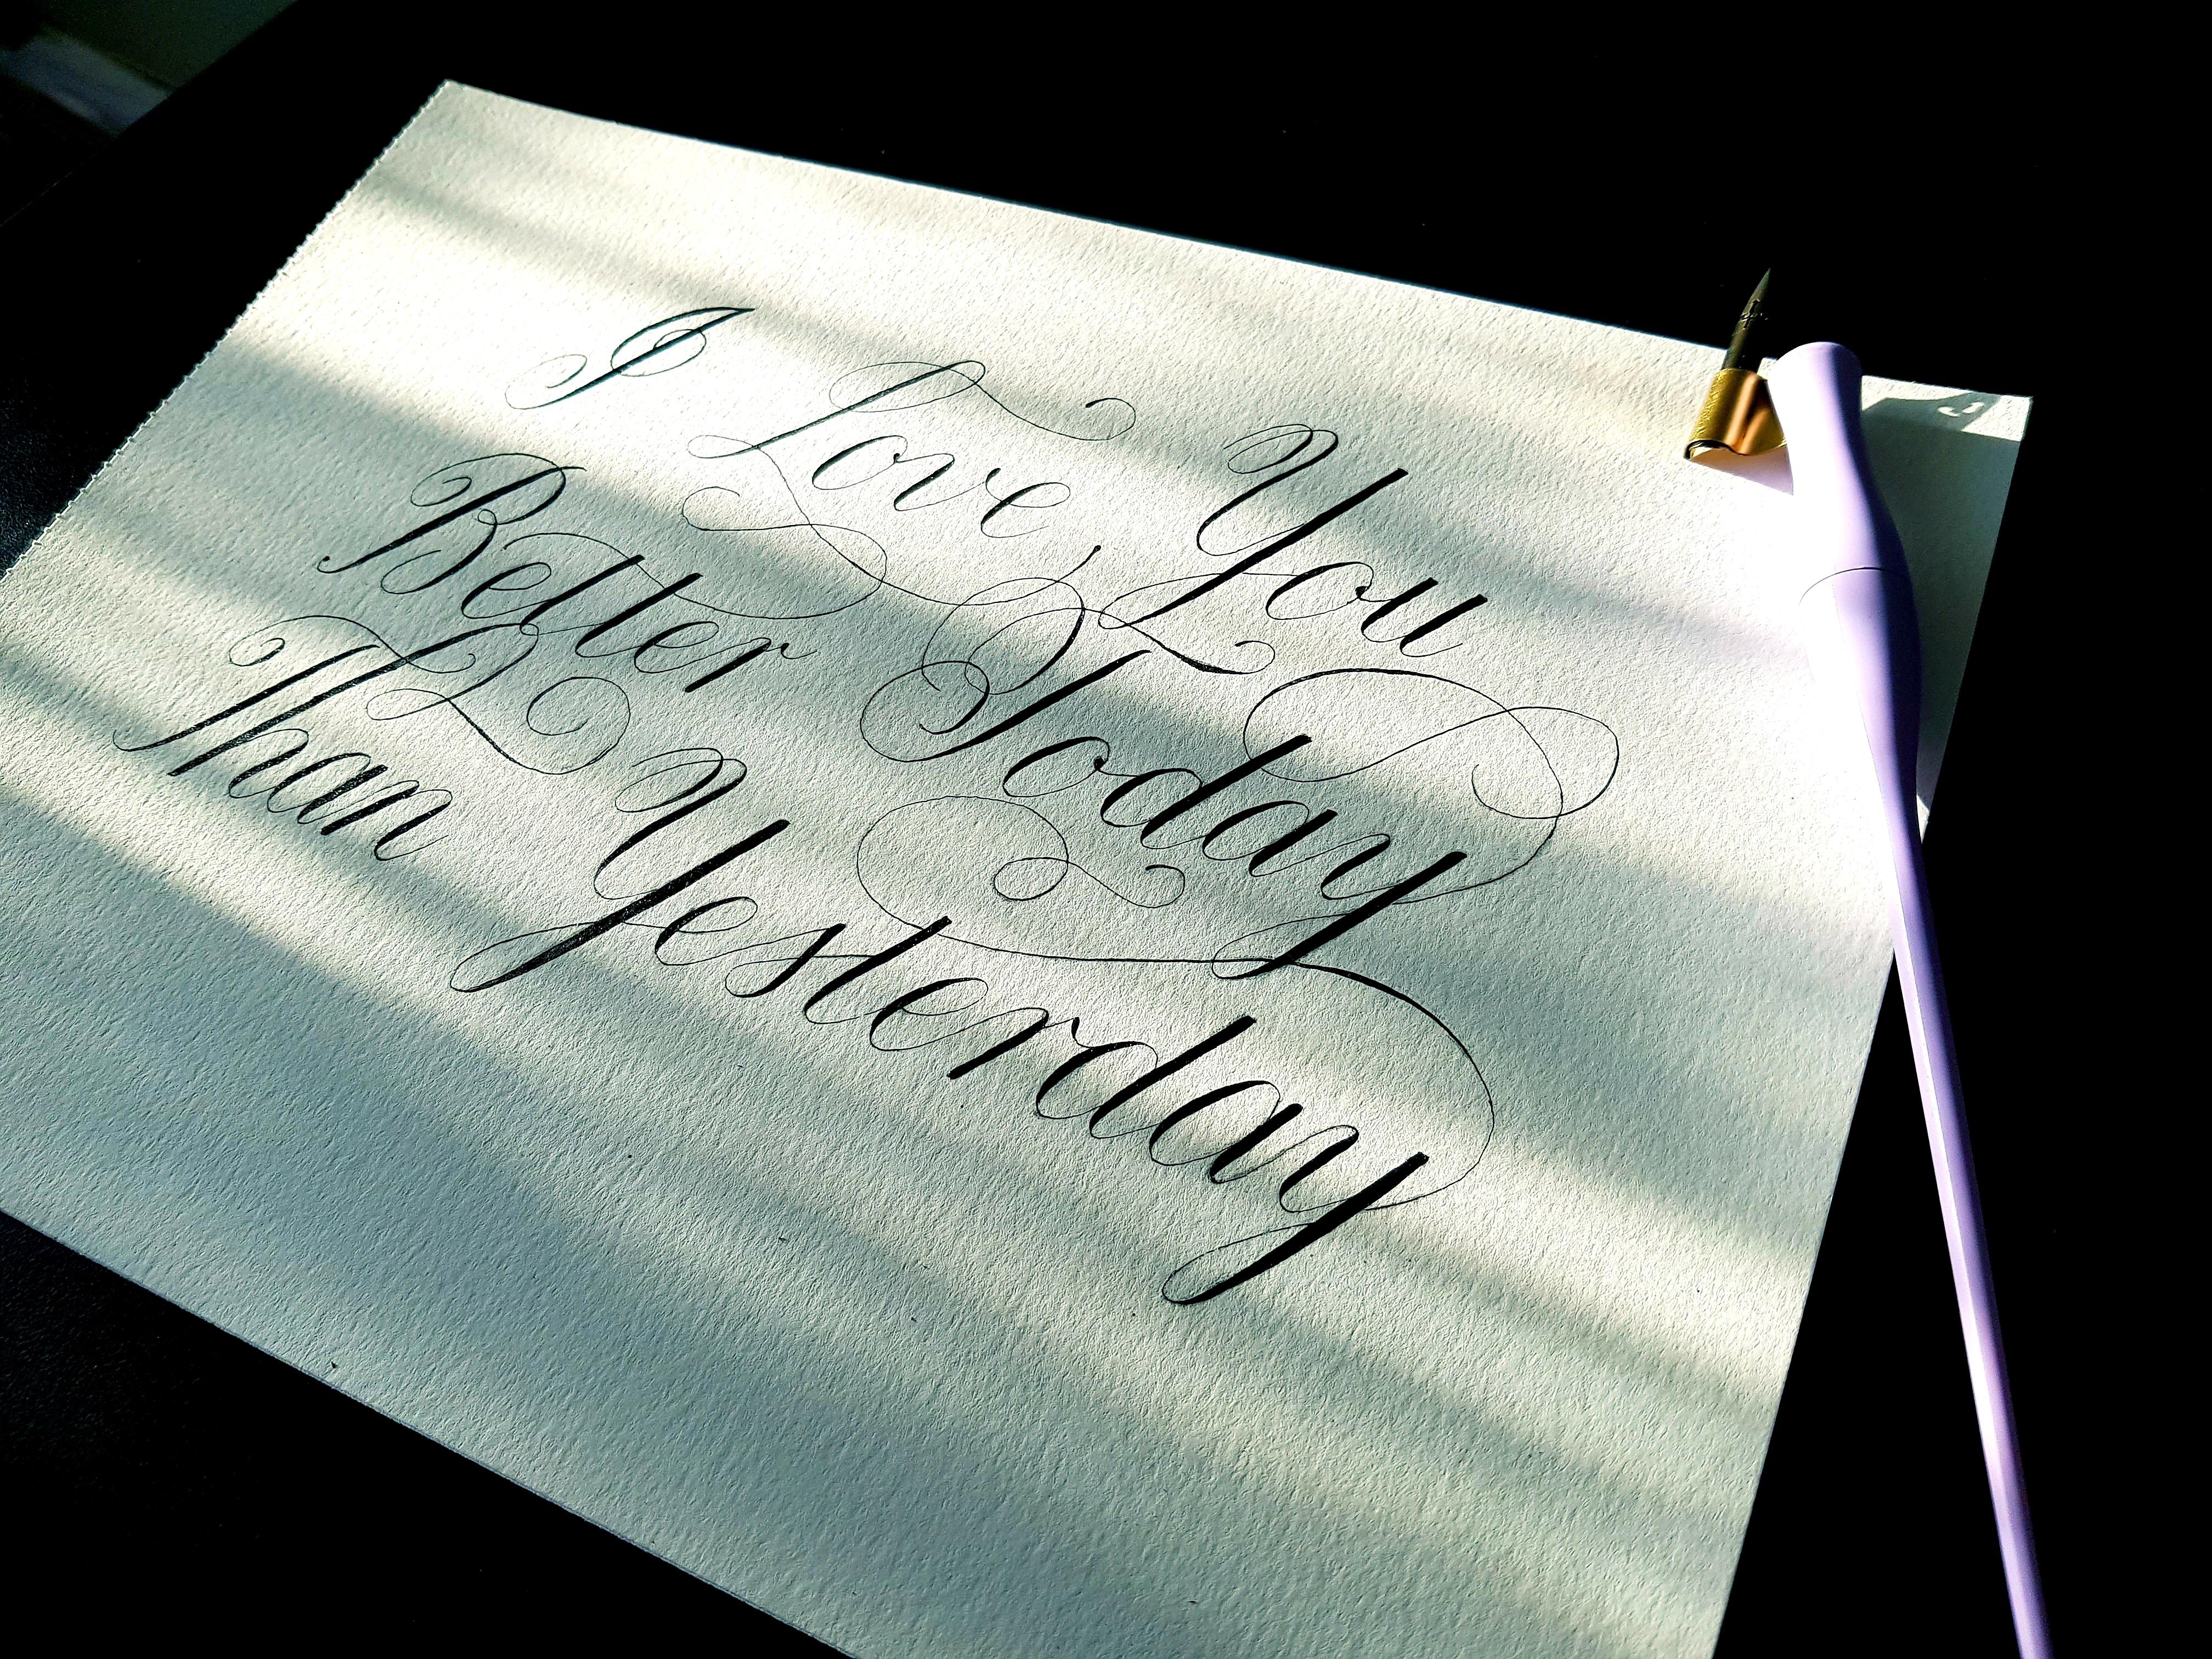 I Love You
Better Today
Than Yesterday